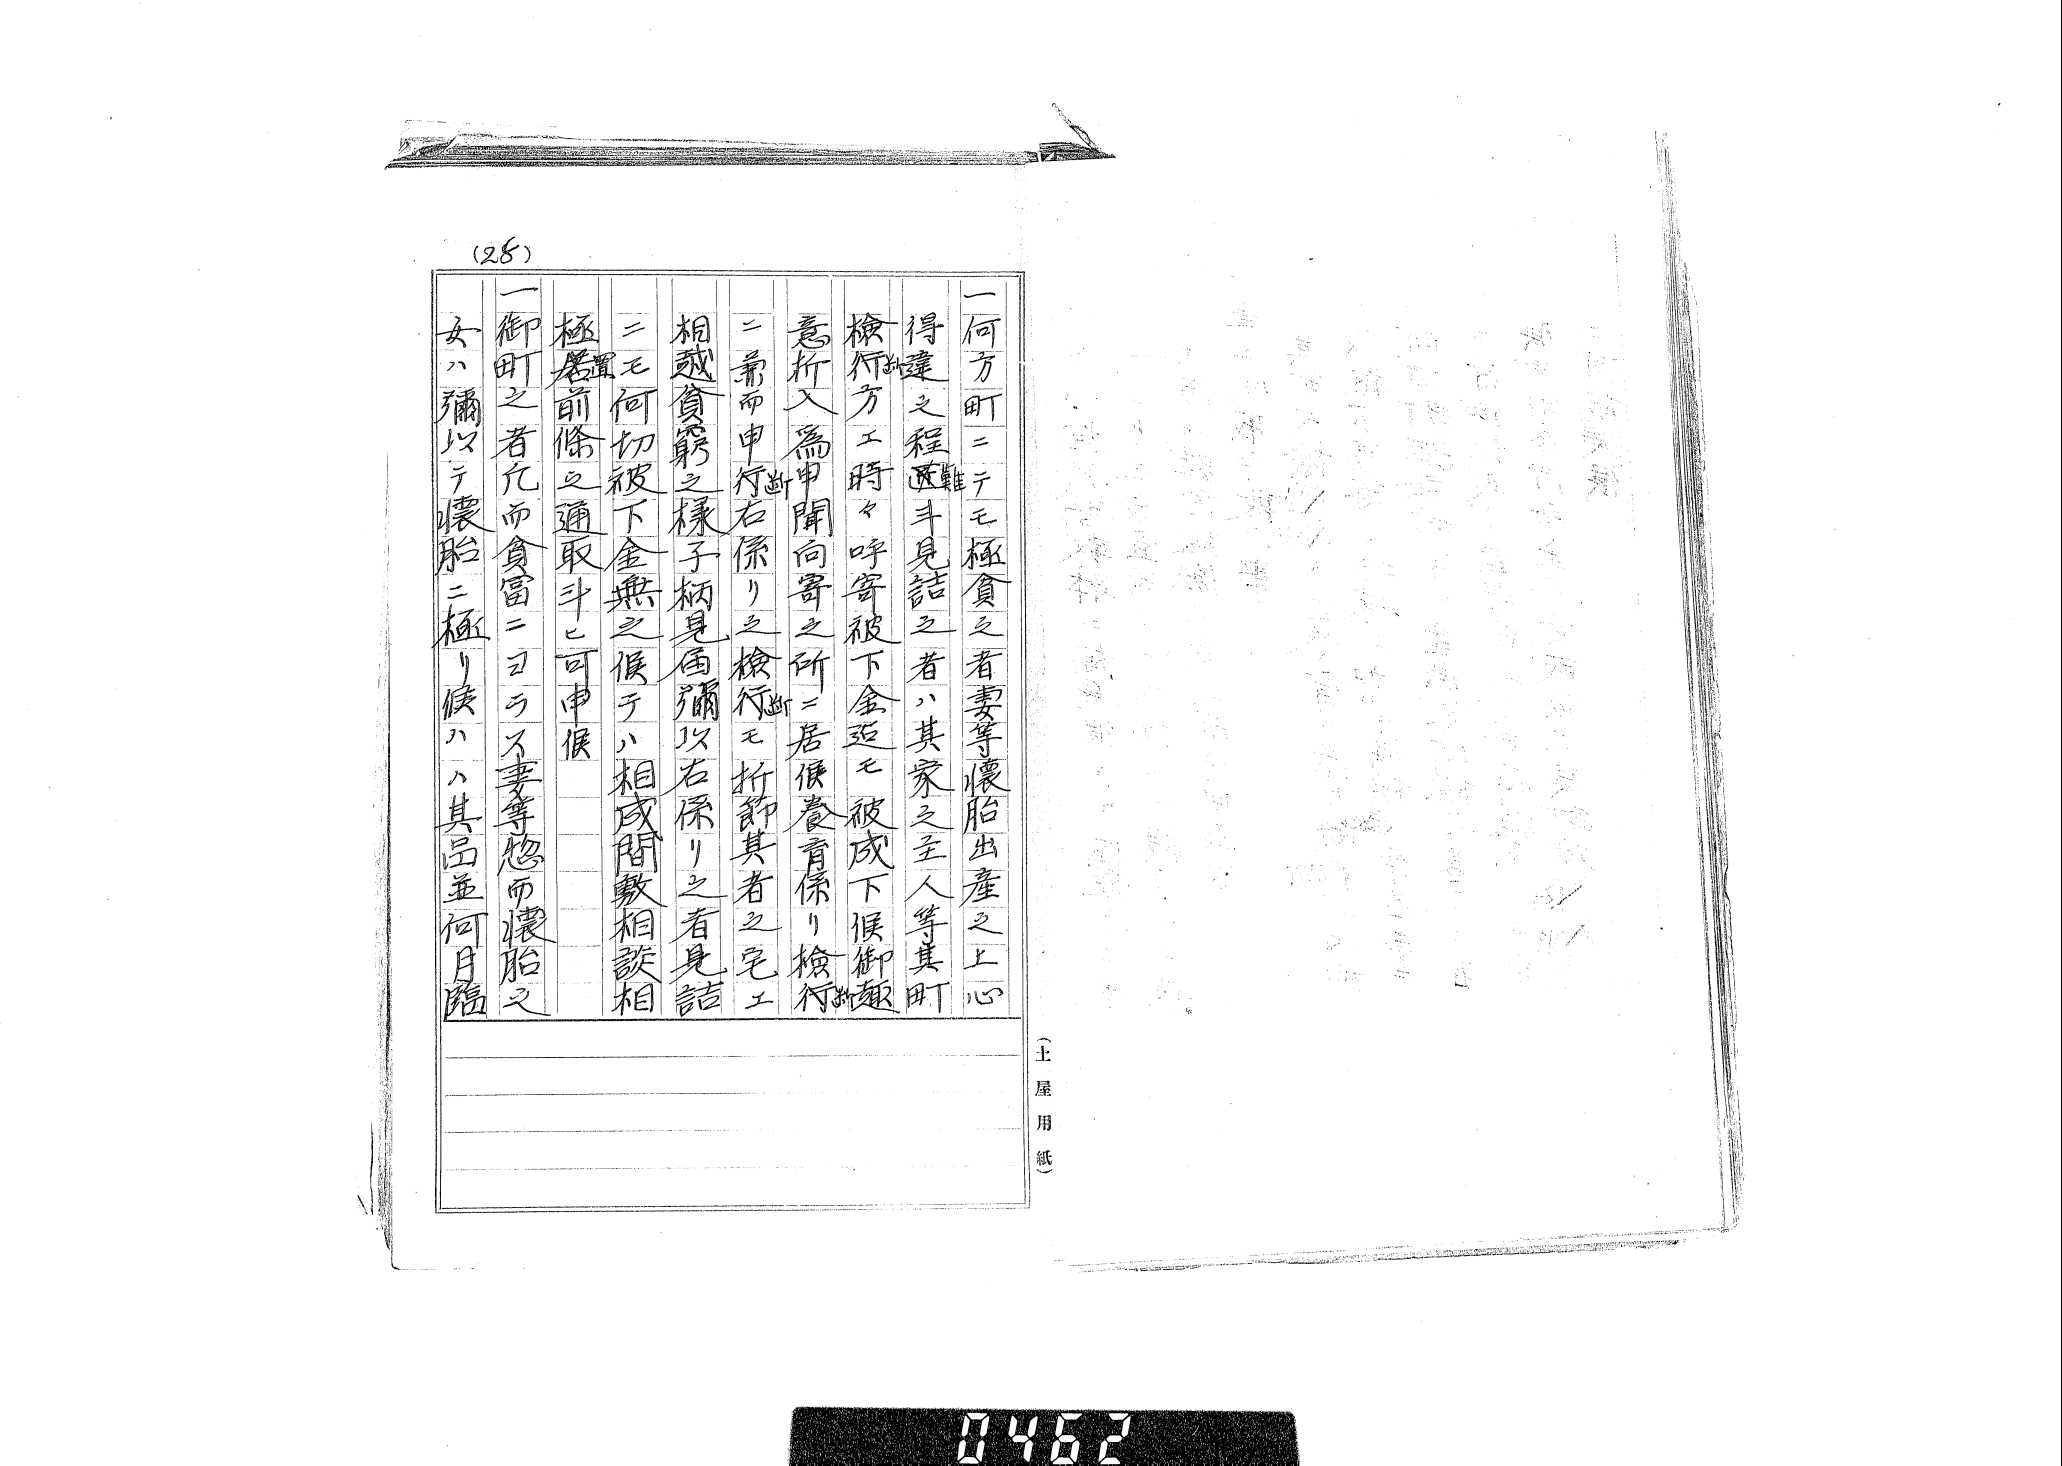 (28)
一何方町ニテモ極貧之者妻等懷胎出産之上心
得違之程難斗見詰之者ハ其家之主人等其町
檢断方エ時々呼寄被下金迠モ被成下候御趣
意折入爲申聞向寄之所ニ居候養育係リ檢断
ニ兼而申断右係リ之檢断モ折節其者之宅エ
相越貧窮之様子柄見届彌以右係リ之者見詰
ニモ何切被下金無之候テハ相成間敷相談相
極置前條之通取斗ヒ可申候
一御町之者凢而貧富ニヨラス妻等惣而懷胎之
女ハ彌以テ懷胎ニ極リ候ハハ其品並何月臨
(土屋用紙)
0462